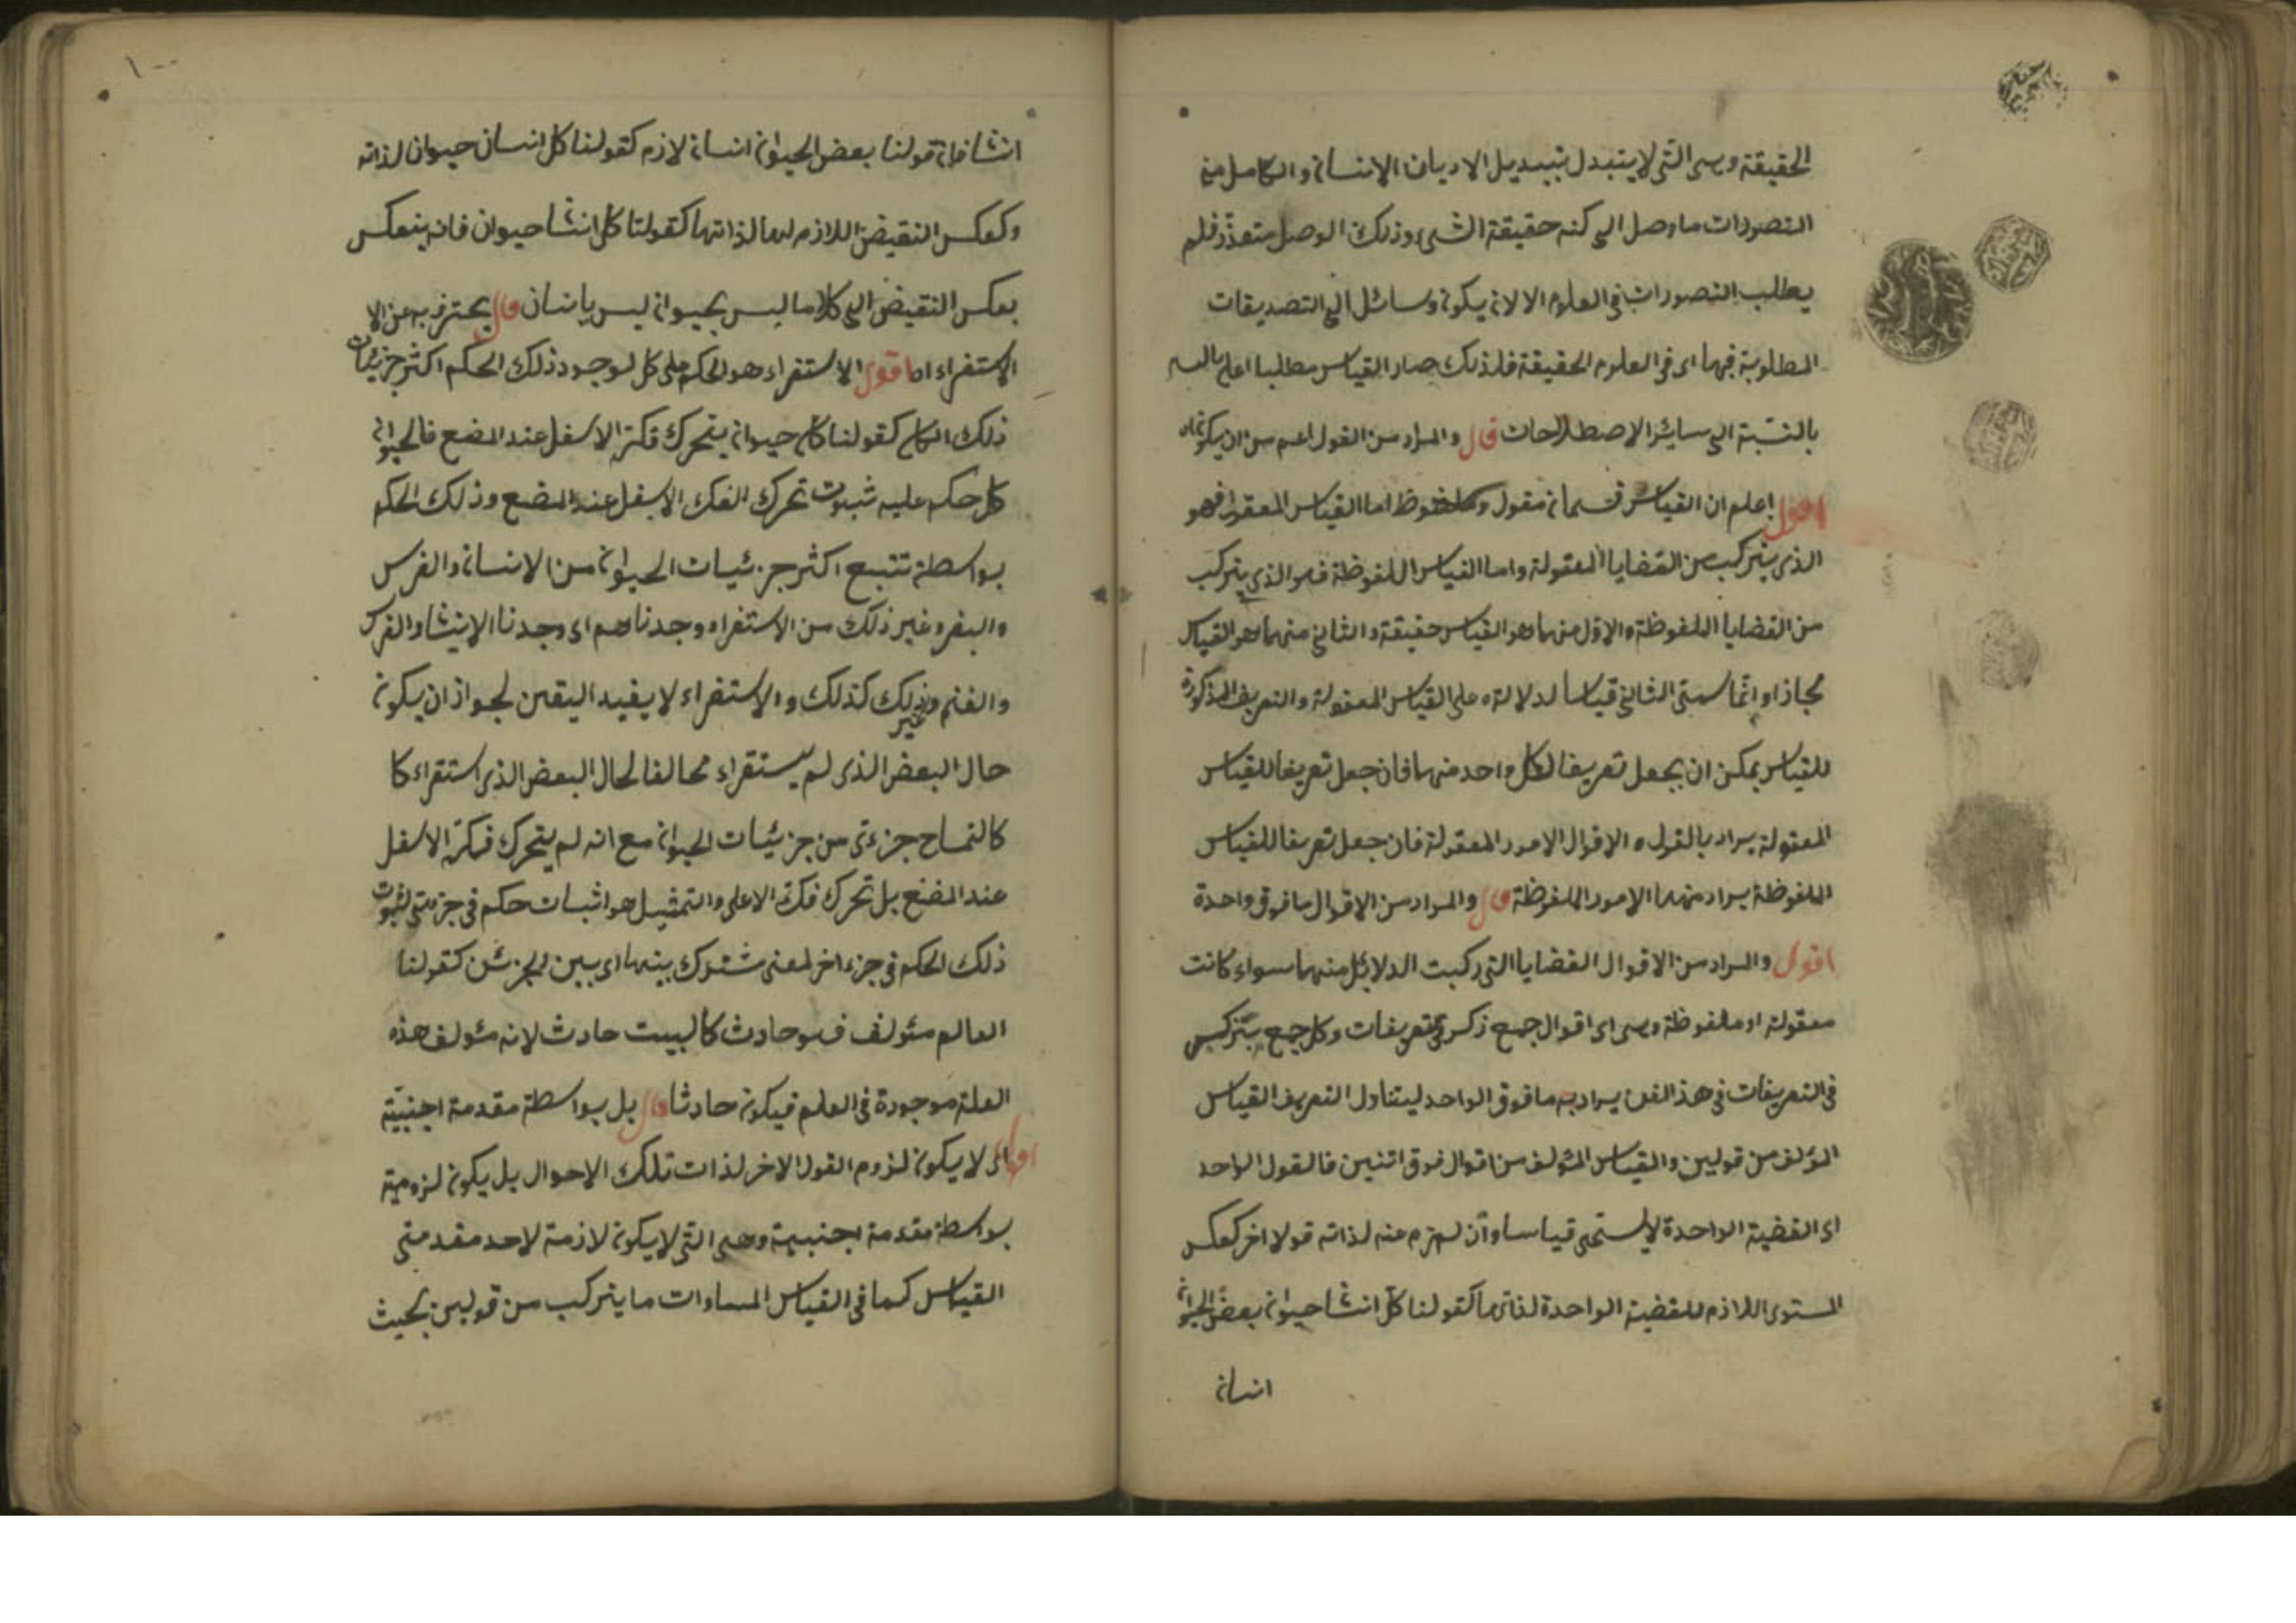 الحقيقة وهى التى لا يتبدل بتبديل الاديان الانسان والكامل من
التصورات ما وصل الى كنه حقيقة الشىء وذلك الوصل متعذر فلم
يطلب التصورات فى العلوم الا لان يكون وسائل الى التصديقات
المطلوبة فيها اى فى العلوم الحقيقة فلذلك صار القياس مطلبا اعلى
بالنسبة الى سائر الاصطلاحات قال والمراد من القول اعم من ان يكون
اقول اعلم ان القياس قسمان مقول وملفوظ اما القياس المعقول فهو
الذى يتركب من القضايا المعقولة واما القياس الملفوظة فهو الذى يتركب
من القضايا الملفوظة والاول منهما هو القياس حقيقة والثانى منهما هو القياس
مجازا وانما سمى الثانى قياسا لدلالته على القياس المعقولة والتعريف المذكورة
للقياس يمكن ان يجعل تعريفا لكل واحد منهما فان جعل تعريفا للقياس
المعقولة يراد بالقول و الاقوال الامور المعقولة فان جعل تعريفا للقياس
الملفوظة يراد منهما الامور الملفوظة قال والمراد من الاقوال ما فوق واحدة
اقول والمراد من الاقوال القضايا التى ركبت الدلائل منهما سواء كانت
معقولة او ملفوظة وهى اى اقوال جمع ذكر فى تعريفات وكل جمع يتركب
فى التعريفات فى هذ الفن يراد به ما فوق الواحد ليتناول التعريف القياس
المؤلف من قولين والقياس المئولف من اقوال فوق اثنين فالقول الواحد
اى القضية الواحدة لا يسمى قياسا وان لزم عنه لذاته قولا اخر كعكس
المستوى اللازم للقضية الواحدة لذاتها كقولنا كل انسا حيوان بعض الحيوان
انسان
١٠٠
انسا فان قولنا بعض الحيوان انسان لازم كقولنا كل انسان حيوان لذاته
وكعكس النقيض اللازم لهما لذاتها كقولنا كل انسا حيوان فانه ينعكس
بعكس النقيض الى كل ما ليس بحيوان ليس بانسان قال يحترز به عن الا
الاستقراء اه اقول الاستقراء هو الحكم على كل لوجود ذلك الحكم اكثر جزئيات
ذلك الكل كقولنا كل حيوان يتحرك فكه الاسفل عند المضغ فالحيوان
كل حكم عليه ثبوت تحرك الفك الاسفل عند المضغ وذلك الحكم
بواسطة تتبع اكثر جزئيات الحيوان من الانسان والفرس
والبقر وغير ذلك من الاستقراء وجدناهم اى وجدنا الانسا والفرس
والغنم وغير ذلك كذلك والاستقراء لا يفيد اليقين لجواز ان يكون
حال البعض الذى لم يستقراء مخالفا لحال البعض الذى استقراء كا
كالتمساح جزءى من جزئيات الحيوان مع انه لم يتحرك فكه الاسفل
عند المضغ بل تحرك فكه الاعلى والتمثيل هو اثبات حكم فى جزئى لثبوت
ذلك الحكم فى جزء اخر لمعنى مشترك بينهما اى بين الجزئين كقولنا
العالم مئولف فهو حادث كالبيت حادث لانه مئولف هذه
العلة موجودة فى العلم فيكون حادثا قال بل بواسطة مقدمة اجنبية
اقول اى لا يكون لزوم القول الاخر لذات تلك الاحوال بل يكون لزومية
بواسطة مقدمة اجنبية وهى التى لا يكون لازمة لاحد مقدمتى
القياس كما فى القياس المساوات ما يتركب من قولين بحيث